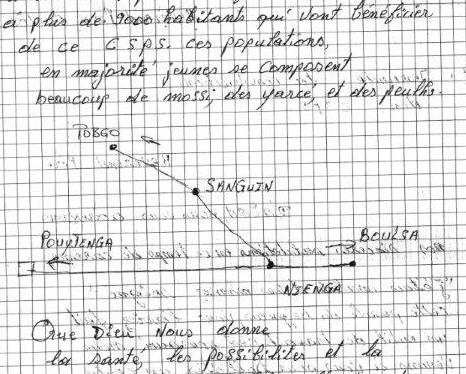 à plus de 9000 habitants qui vont bénéficier
de ce CSPS. ces populations,
en majorité jeunes se composent
beaucoup de mossi, des yarcé, et des peulhs.
TOBGO
SANGUIN
POUYTENGA
BOULSA
NIENGA
Que Dieu nous donne
la santé, les possibilités et la